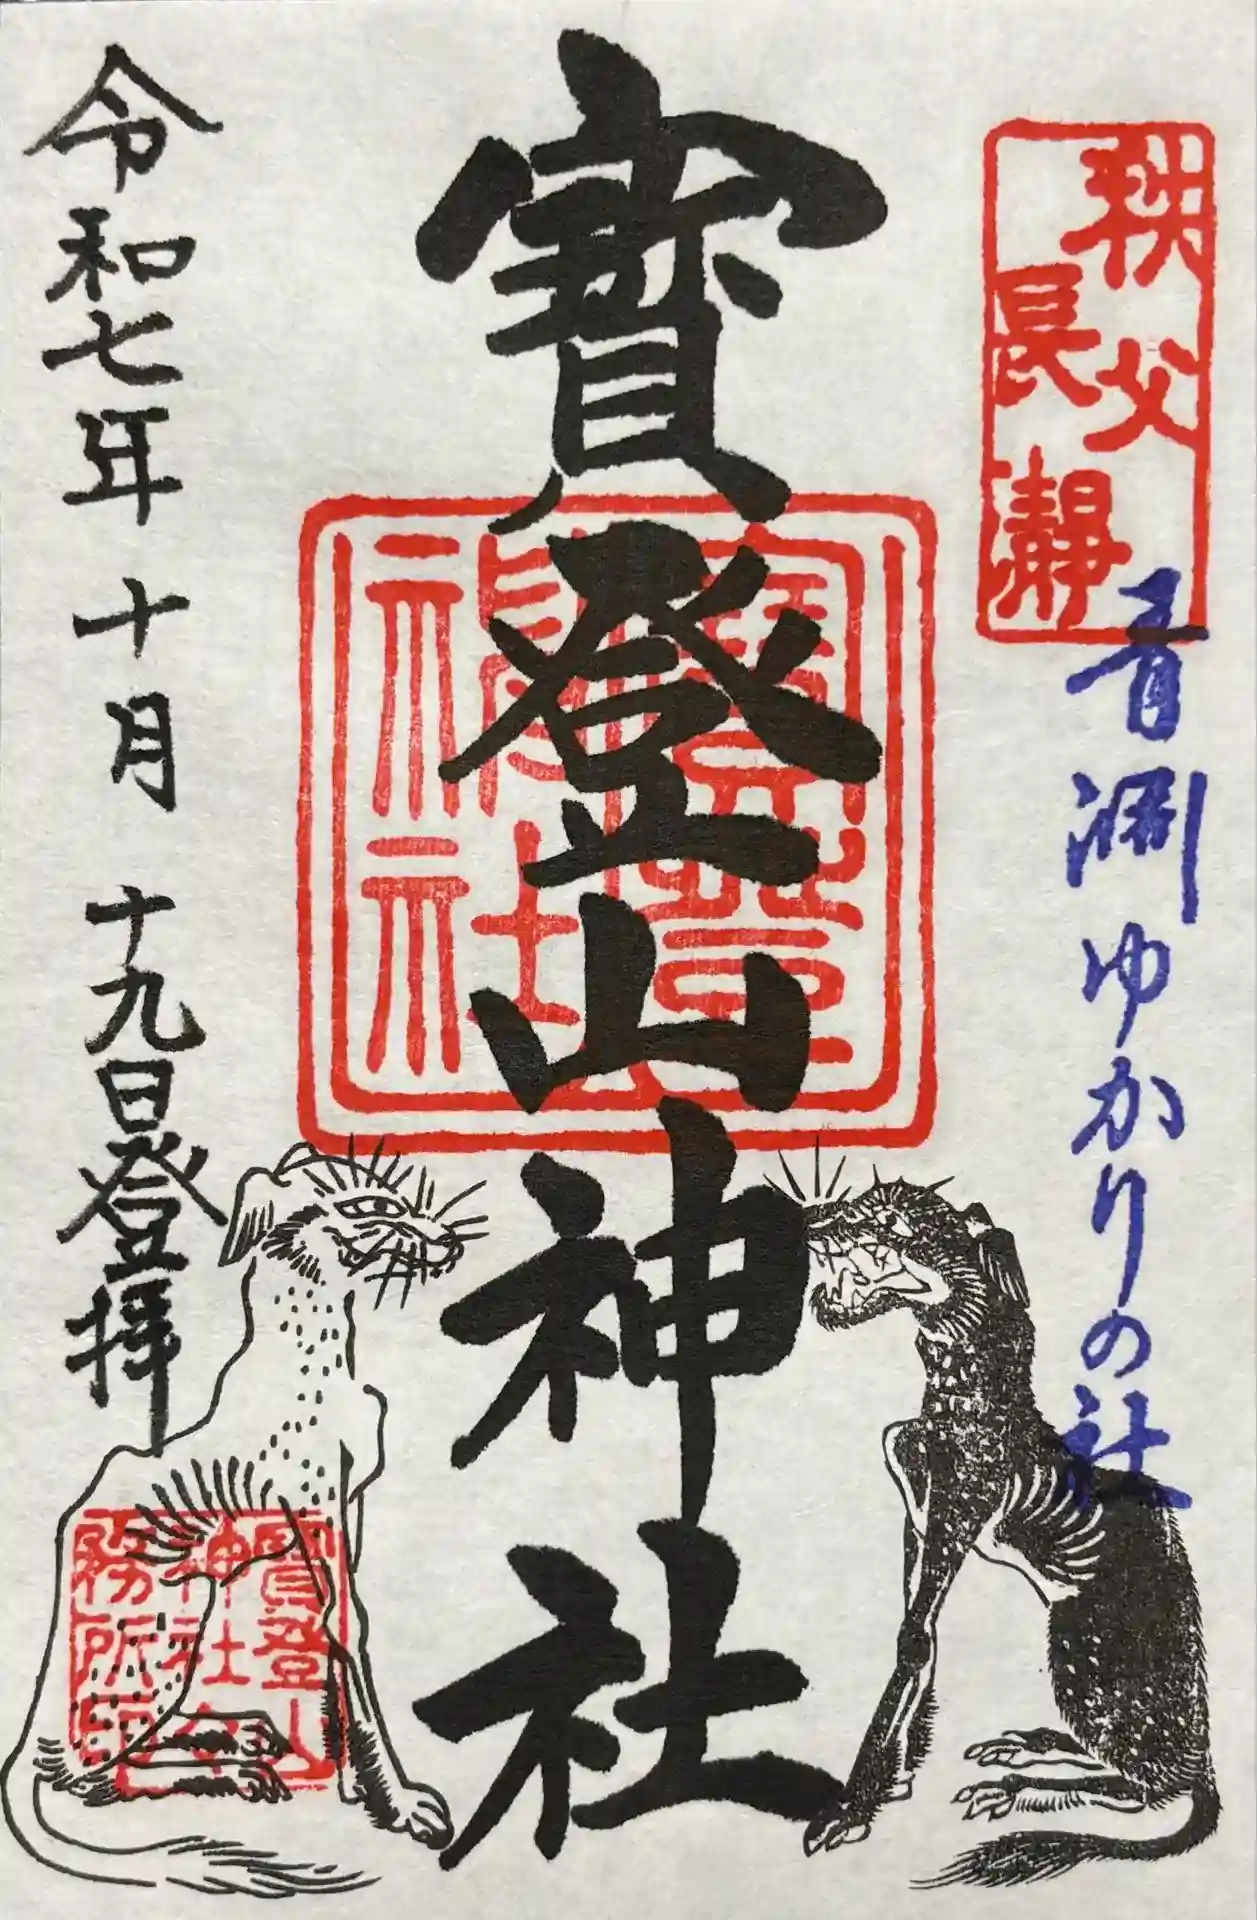 秩父
長瀞
青淵ゆかりの社
寳登山神社
令和七年十月十九日登拝
寳登山
神社
務所印